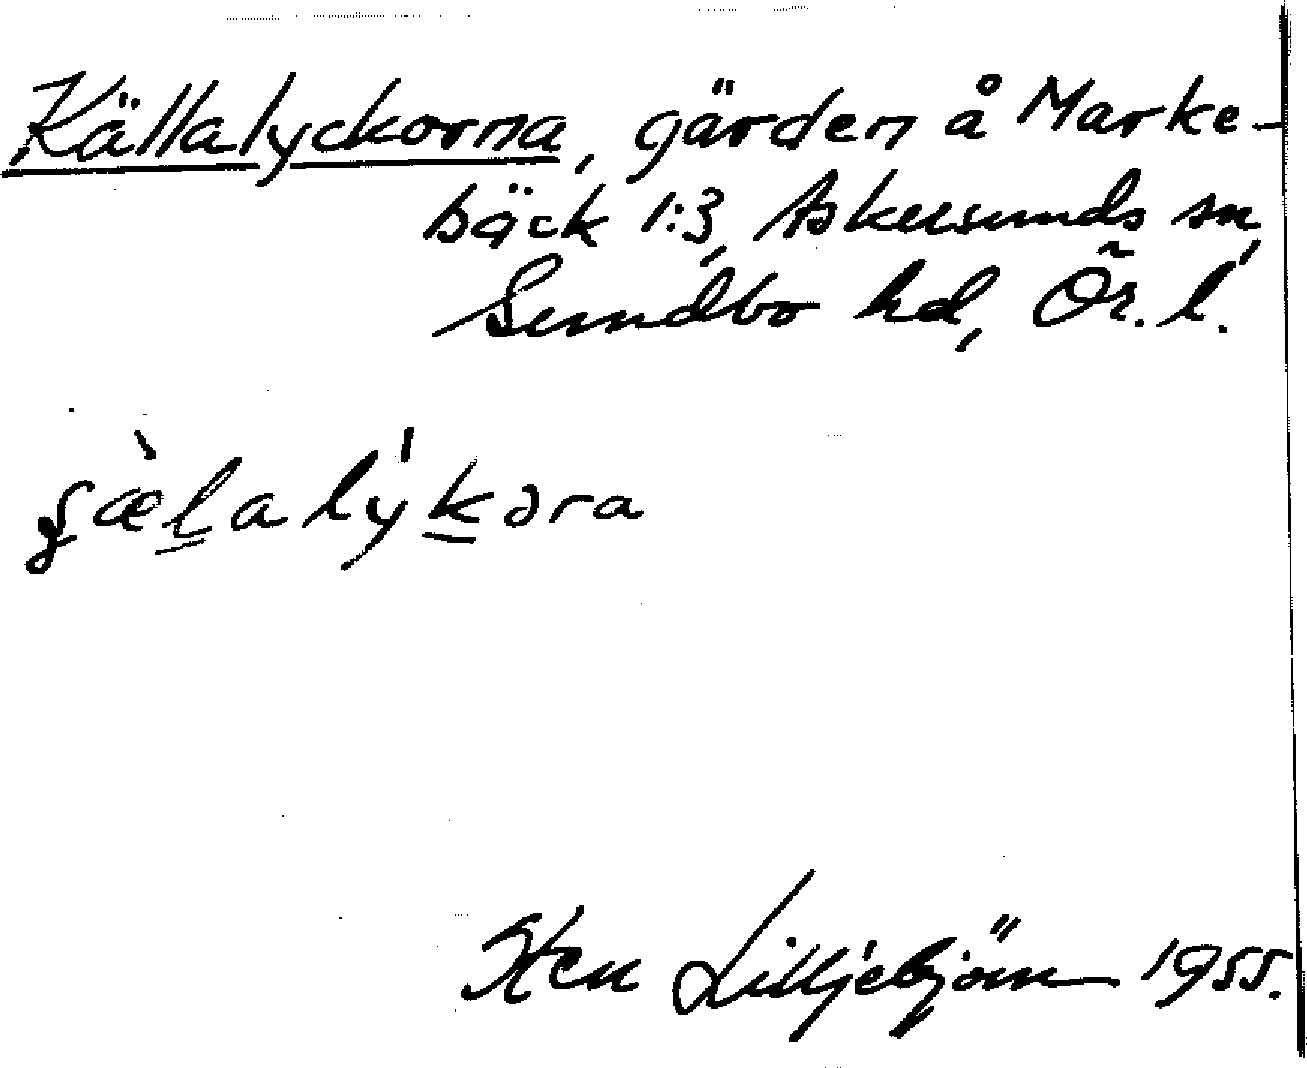 Källalyckorna, gärden å Marke-
bäck 1:3, Askersunds sn,
Sundbo hd, Ör. l.
ʂæ̀lalýkəra
Sten Lilljebjörn 1955.